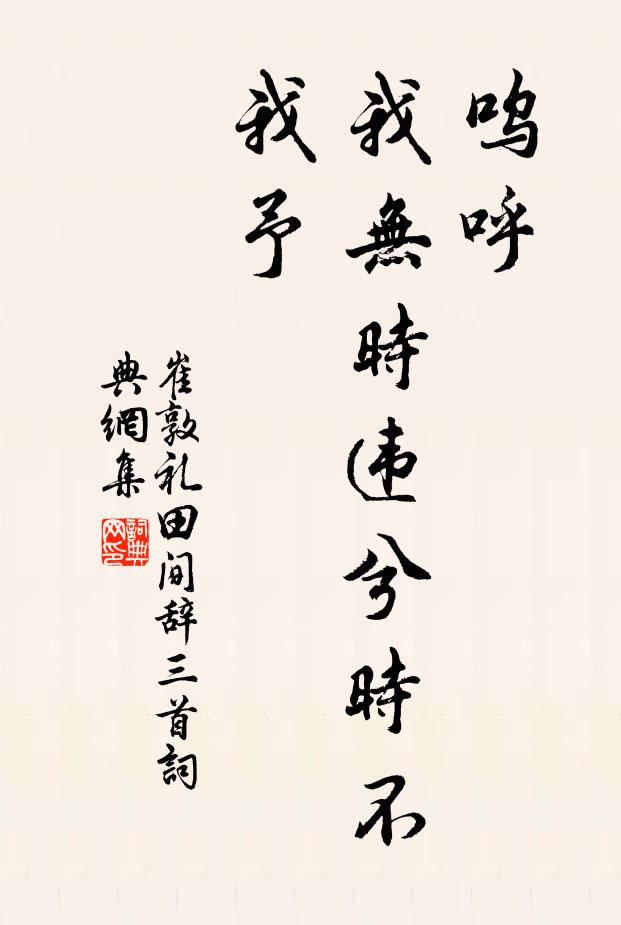 呜呼
我無時违兮時不
我予
崔敦礼田间辞三首詞
典網集
詞典網印